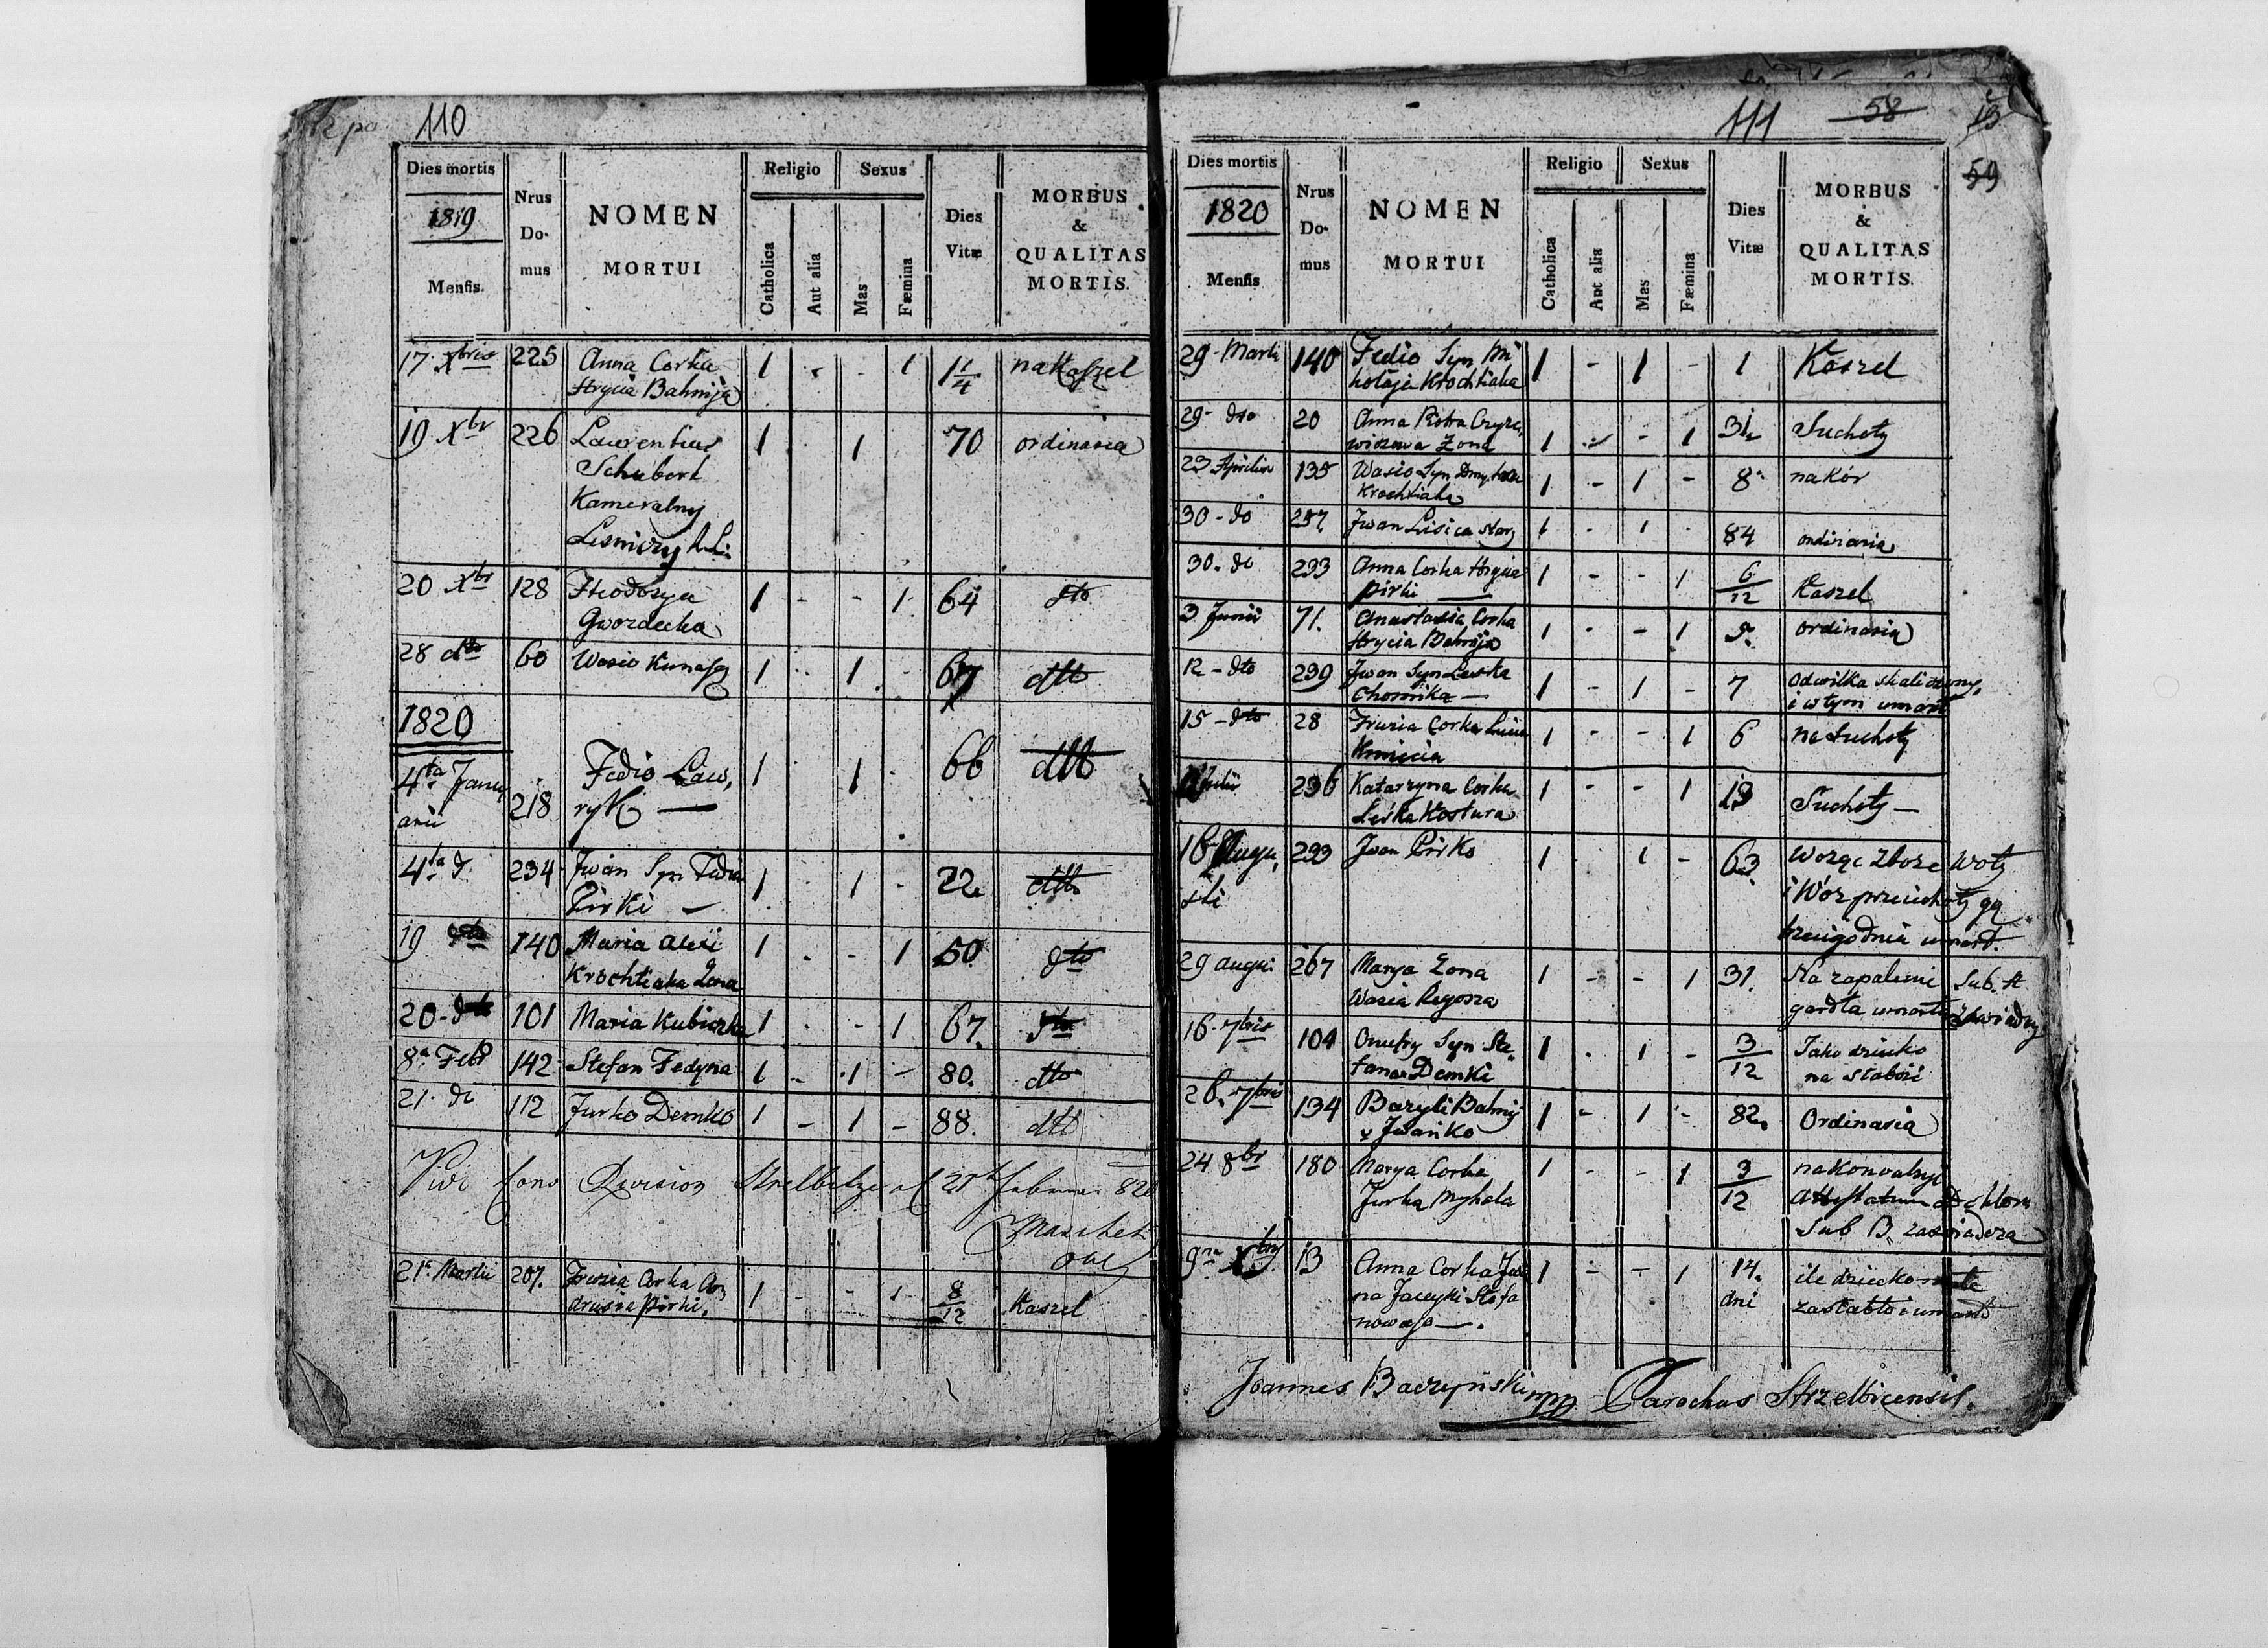 110
Dies mortis
1819
Mensis.
Nrus
Do-
mus
NOMEN
MORTUI
Religio
Catholica
Aut alia
Sexus
Mas
Fæmina
Dies
Vitæ
MORBUS
&
QUALITAS
MORTIS.
17. Xbris 225 Anna Corka 1 - - 1 1 1/4 na Kaszel
Hrycia Bahnija
19 Xbr 226 Laurentius 1 1 70 ordinaria
Schubert
Kameralny
Lesniczy
20 Xbr 128 Theodozya 1 - - 1 64 dto
Gwozdecka
28 dto 60 Wasio Kunasz 1 - 1 - 67 dtto
1820
4ta Janu 218 Fedio Law, 1 1 - 66 dtto
arii ryk —
4ta d. 234 Jwan Syn Fedia 1 1 - 22 dtto
Pirki —
19 dto 140 Maria Alexi 1 - - 1 50 dto
Krochtiaka Zona
20 - dto 101 Maria Kubiczka 1 - - 1 67. dto
8a Febr 142 Stefan Fedyna 1 - 1 - 80. dtto
21. do 112 Jurko Demko 1 - 1 - 88. dtto
Vidi Cons Division Strelbitze 21t Februar 820
21a Martii 207. Fruzia Corka An 1 - - 1 8/12 Kaszel
drusia Pirki,
111 58
59
Dies mortis
1820
Mensis
Nrus
Do-
mus
NOMEN
MORTUI
Religio
Catholica
Aut alia
Sexus
Mas
Fæmina
Dies
Vitæ
MORBUS
&
QUALITAS
MORTIS.
29 - Marti 140 Fedio Syn Mi 1 - 1 - 1 Kaszel
kołaja Krochtiaka
29 - dto 20 Anna Piotra 1 - - 1 31 Suchoty
Zona
23 Aprilis 135 Wasio Syn Dmytra 1 - 1 - 8 na Kór
Krochtiaka
30 - do 257 Jwan Lisica stary 1 - 1 - 84 ordinaria
30. do 233 Anna Corka Hrycia 1 - - 1 6/12 Kaszel
Pirki —
3 Junii 71. Anastasia Corka 1 - - 1 5. ordinaria
Hrycia Bahnija
12 - dto 239 Jwan Syn Leska 1 - 1 - 7 od wilka skaliczony,
Chomika — i w tym umarł
15 - dto 28 Fruzia Corka 1 - - 1 6 na suchoty
Kmiecia
Julii 236 Katarzyna Corka 1 - - 1 19 Suchoty —
Leśka Kostura
16 Augu, 233 Jwan Pirko 1 - 1 - 63 Wożąc zboże Woły
sti i Wóz przeiechały go
trzeciego dnia umarł.
29 Augu: 267 Marya Zona 1 - - 1 31. Na zapalenie Sub. A
Wasia gardła umarła zaświadcz
16 - 7bris 104 Onufry Syn Ste, 1 - 1 - 3/12 Jako dziecko
fana Demki na słabość
26. 7bris 134 Bazyli Bahnij 1 - 1 - 82 Ordinaria
v Jwańko
24 8br 180 Marya Corka 1 - - 1 3/12 na Konwulsye
Jurka Mykola Attestatum
Sub B. zaświadcza
9na Xbrs 13 Anna Corka Jwa 1 - - 1 14. ile dziecko małe
na Jaceyki Stefa dni zasłabło i umarło
nowego —.
Joannes Baczyński mpp Parochus Strzelbicensis.